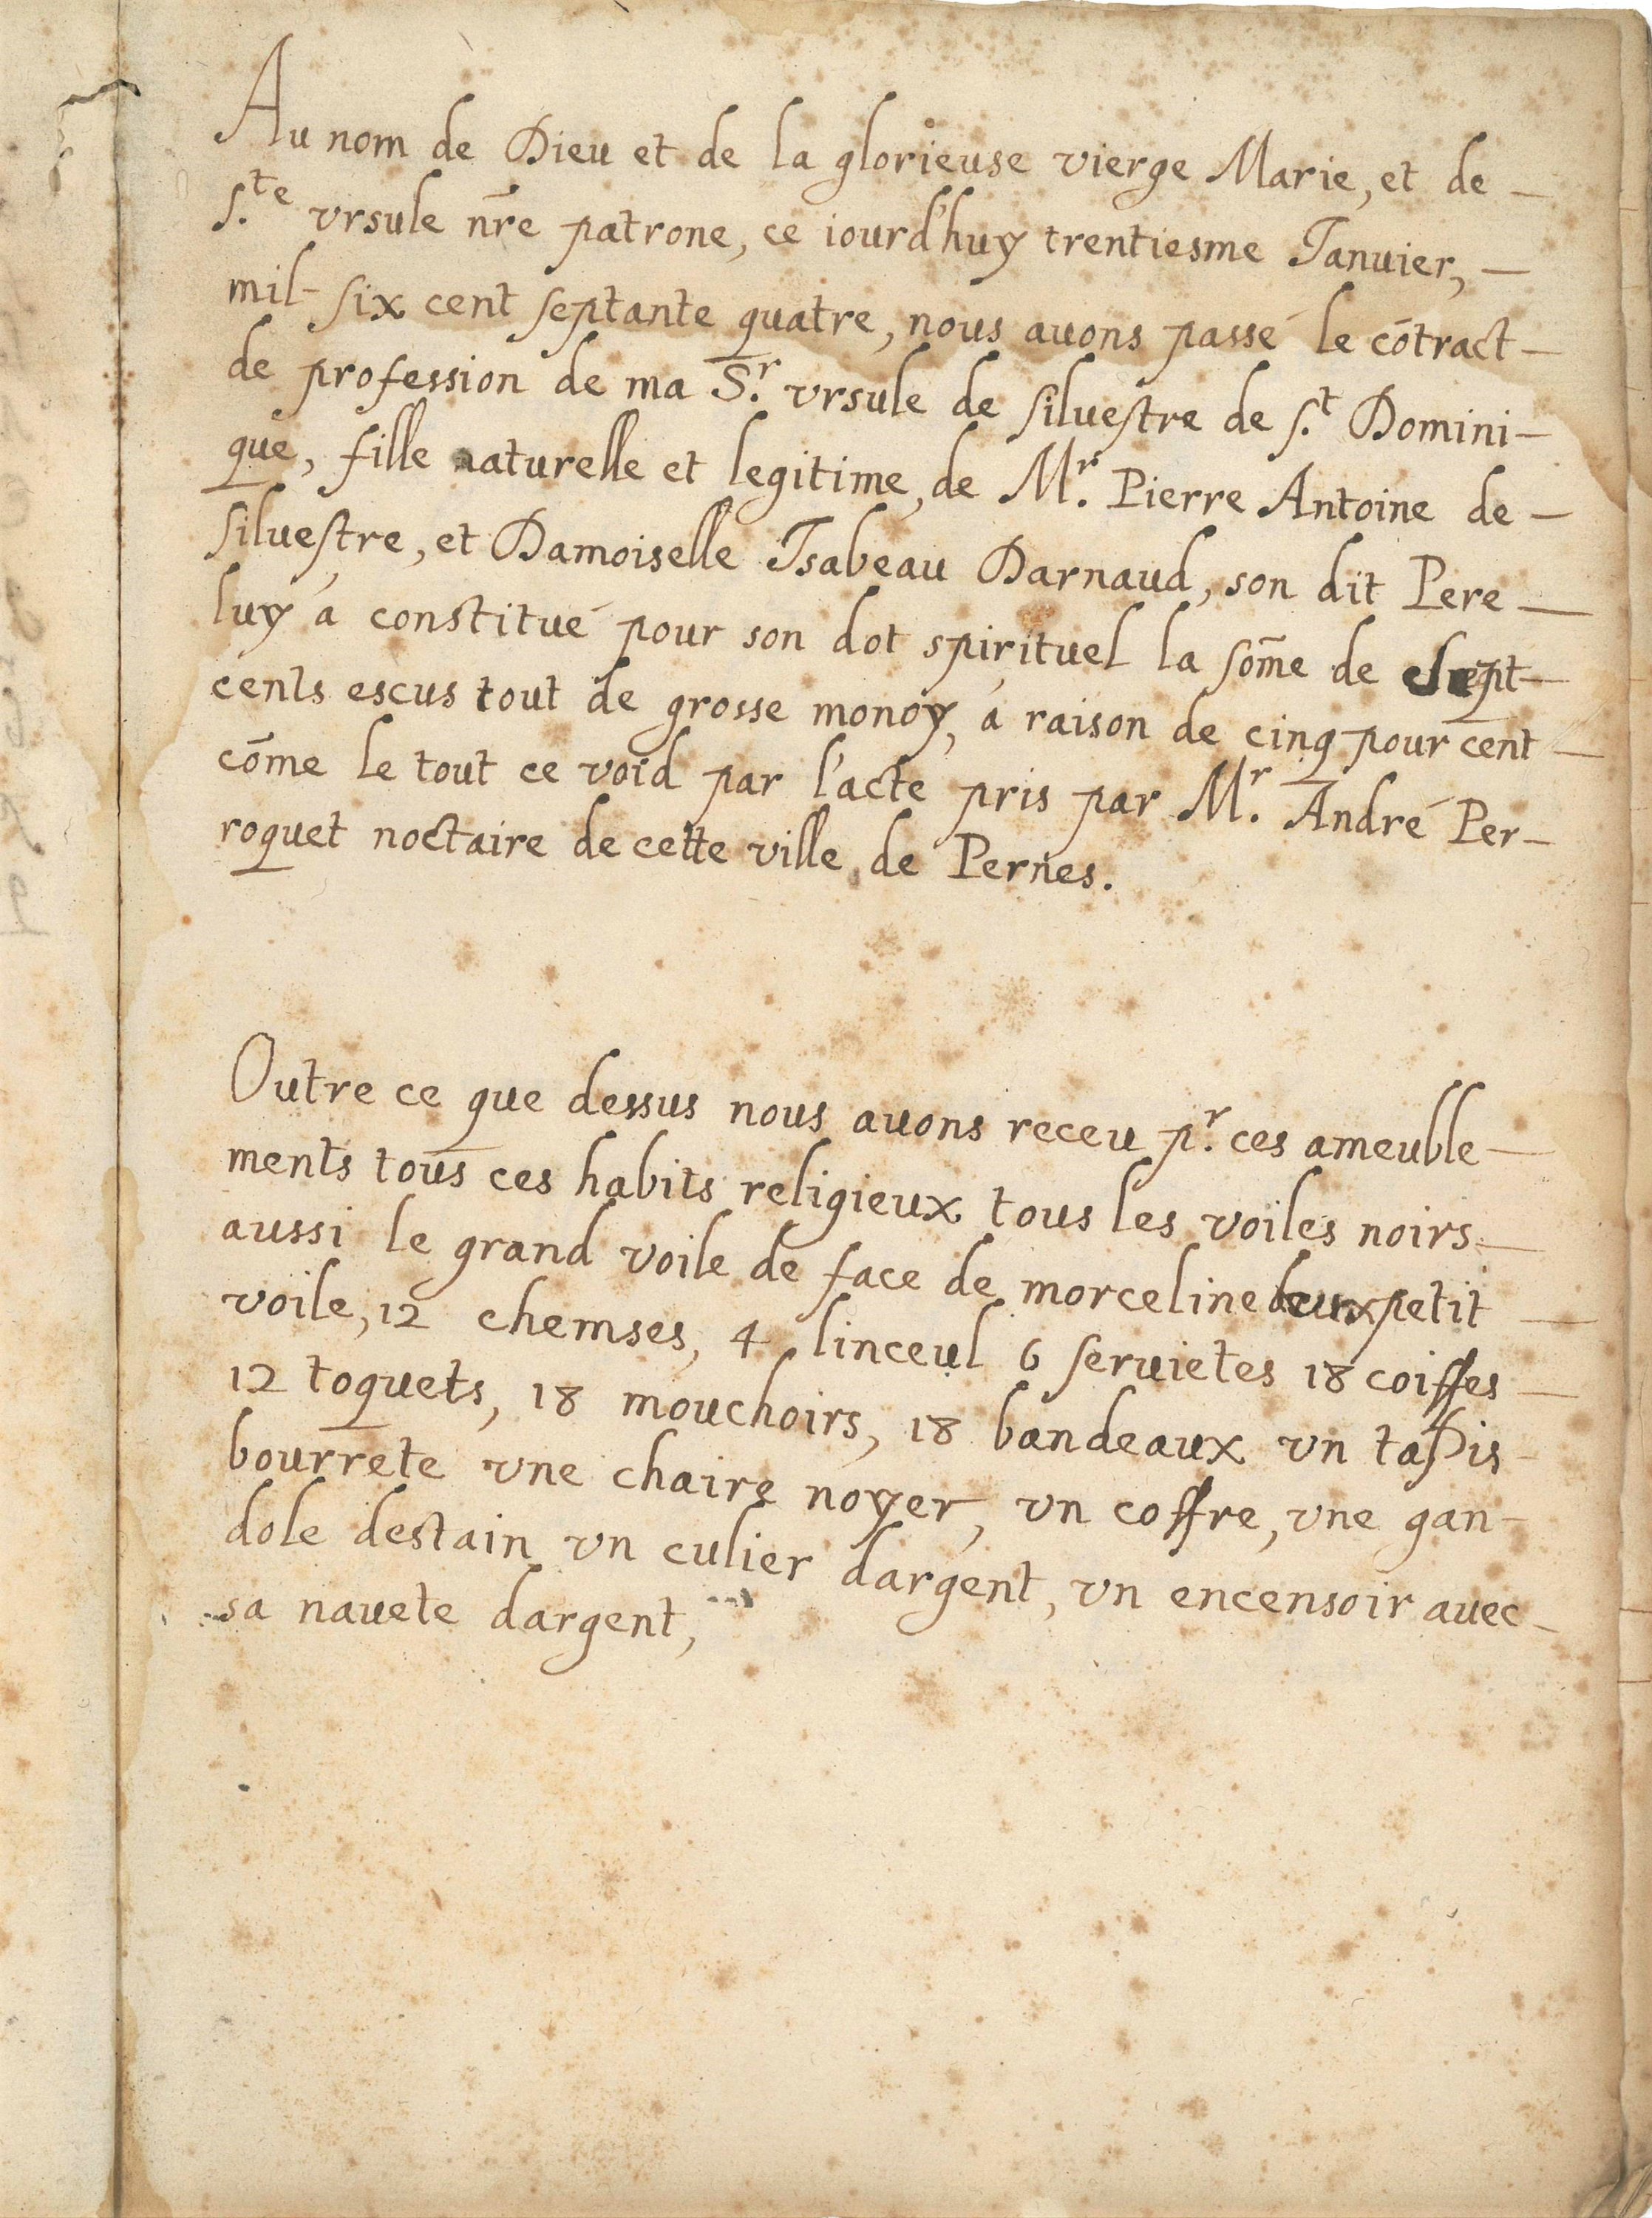 Au nom de Dieu et de la glorieuse vierge Marie, et de —
S.te vrsule nr̃e patrone, ce iourd'huy trentiesme Ianuier, —
mil six cent septante quatre, nous auons passé le cōtract —
de profession de ma S.r vrsule de siluestre de s.t Domini —
que, fille naturelle et legitime, de M.r Pierre Antoine de —
siluestre, et Damoiselle Isabeau Darnaud, son dit Pere —
luy á constitué pour son dot spirituel la som̃e de sept —
cents escus tout de grosse monoy, á raison de cinq pour cent —
cōme le tout ce void par l'acte pris par M.r André Per —
roquet noctaire de cette ville de Pernes.
Outre ce que dessus nous auons receu p.r ces ameuble —
ments tous ces habits religieux tous les voiles noirs —
aussi le grand voile de face de morceline deux petit —
voile, 12 chemses, 4 linceul 6 seruietes 18 coiffes —
12 toquets, 18 mouchoirs, 18 bandeaux vn tapis —
bourrete vne chaire noyer, vn coffre, vne gan —
dole destain vn culier dargent, vn encensoir auec —
sa nauete dargent,